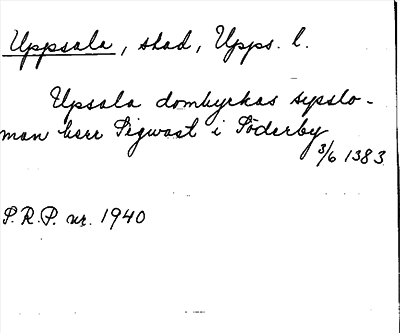 Uppsala, stad, Upps. l.
Upsala domkyrkas sysslo-
man herr Sigwast i Söderby
3/6 1383
S.R.P. nr. 1940